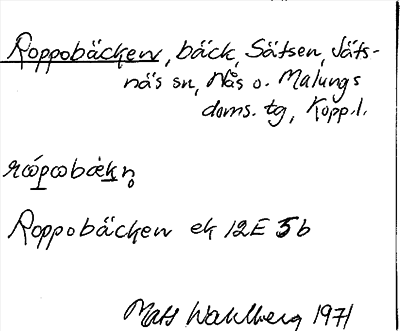 Roppobäcken, bäck, Säfsen, Säfs-
näs sn, Nås o. Malungs
doms. tg, Kopp. l.
rωpωbäkn̥
Roppobäcken ek 12E 5b
Mats Wahlberg 1971